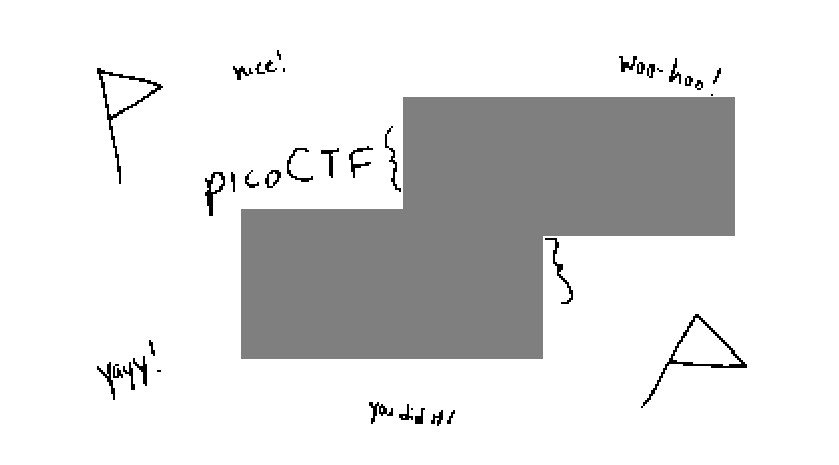 nice!
woo-hoo!
picoCTF{
}
yayy!
you did it!